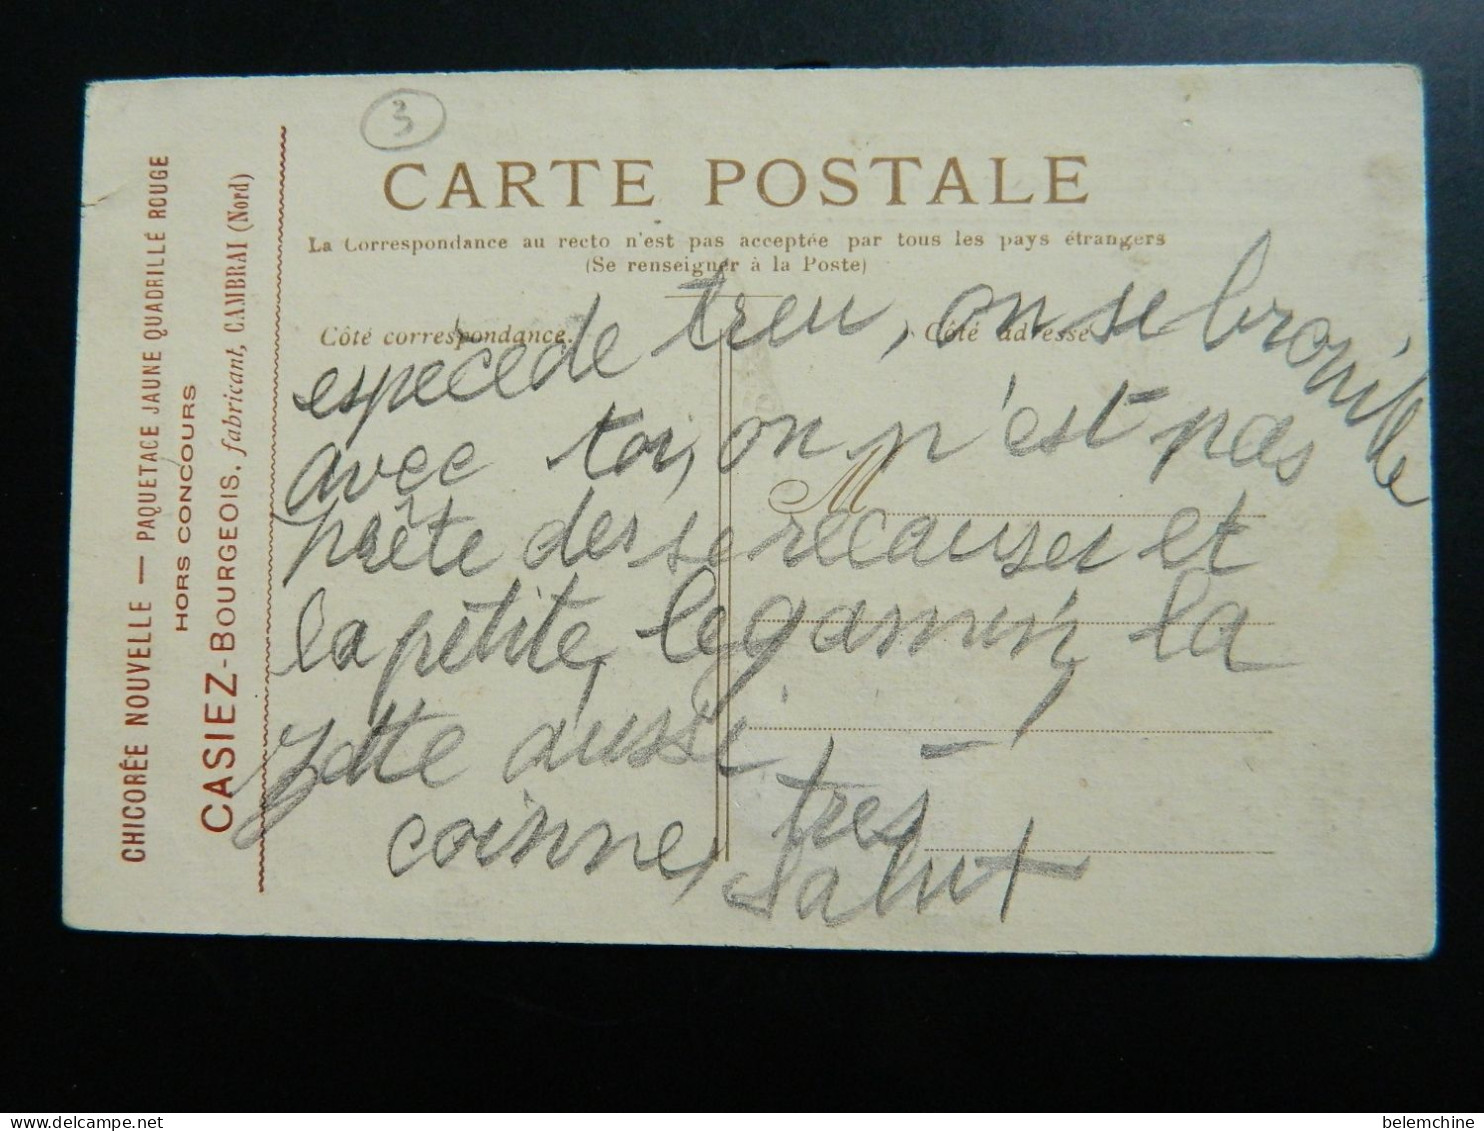 3
CARTE POSTALE
La Correspondance au recto n'est pas acceptée par tous les pays étrangers
(Se renseigner à la Poste)
Côté correspondance.
Côté adresse
CHICORÉE NOUVELLE — PAQUETAGE JAUNE QUADRILLÉ ROUGE
HORS CONCOURS
CASIEZ-BOURGEOIS, fabricant, CAMBRAI (Nord)
M
espèce de treu, on se bronille
avec toi, on n'est pas
prête der se recauser et
la petite, le gamin, la
aussi
très
salut
belemchine